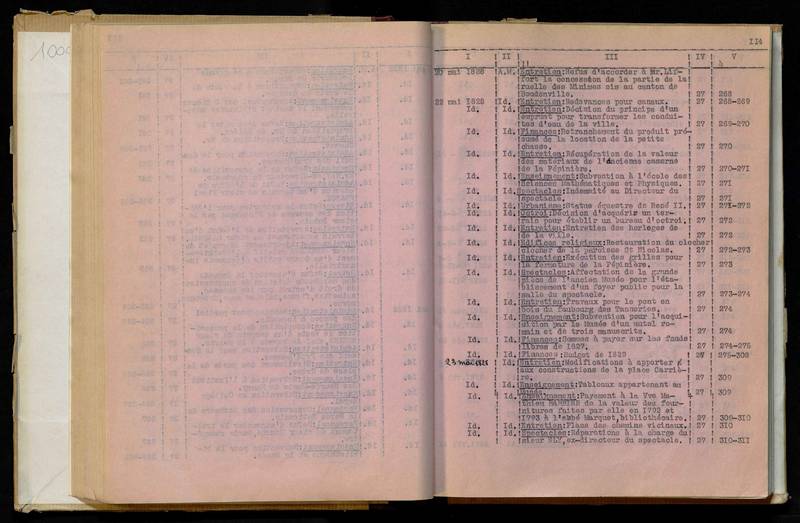 1000
114
I II III IV V
20 mai 1828 A.M. Entretien:Refus d'accorder à Mr.Lif-
fort la concession de la partie de la
ruelle des Minimes sis au canton de
Boudonville. 27 268
22 mai 1828 Id. Entretien:Redevances pour canaux. 27 268-269
Id. Id. Entretien:Décision du principe d'un
emprunt pour transformer les condui-
tes d'eau de la ville. 27 269-270
Id. Id. Finances:Retranchement du produit pré
sumé de la location de la petite
chasse. 27 270
Id. Id. Entretien:Récupération de la valeur
des matériaux de l'ancienne caserne
de la Pépinière. 27 270-271
Id. Id. Enseignement:Subvention à l'école des
Sciences Mathématiques et Physiques. 27 271
Id. Id. Spectacles:Indemnité au Directeur du
spectacle. 27 271
Id. Id. Urbanisme:Statue équestre de René II. 27 271-272
Id. Id. Octroi:Décision d'acquérir un ter-
rain pour établir un bureau d'octroi. 27 272
Id. Id. Entretien:Entretien des horloges de
de la ville. 27 272
Id. Id. Edifices religieux:Restauration du clocher
clocher de la paroisse St Nicolas. 27 272-273
Id. Id. Entretien:Exécution des grilles pour
la fermeture de la Pépinière. 27 273
Id. Id. Spectacles:Affectation de la grande
pièce de l'ancien Musée pour l'éta-
blissement d'un foyer public pour la
salle du spectacle. 27 273-274
Id. Id. Entretien:Travaux pour le pont en
bois du faubourg des Tanneries. 27 274
Id. Id. Enseignement:Subvention pour l'acqui-
sition par le Musée d'un métal ro-
main et de trois manuscrits. 27 274
Id. Id. Finances:Sommes à payer sur les fonds
libres de 1827. 27 274-275
Id. Id. Finances:Budget de 1829 27 275-308
23 mai 1828 Id. Entretien:Modifications à apporter
aux constructions de la place Carriè-
re. 27 309
Id. Id. Enseignement:Tableaux appartenant au
27 309
Id. Id. Enseignement:Payement à la Vve Ma-
thieu de la valeur des four-
nitures faites par elle en 1792 et
1793 à l'abbé Marquet,bibliothécaire. 27 309-310
Id. Id. Entretien:Plans des chemins vicinaux. 27 310
Id. Id. Spectacles:Réparations à la charge du
sieur ,ex-directeur du spectacle. 27 310-311